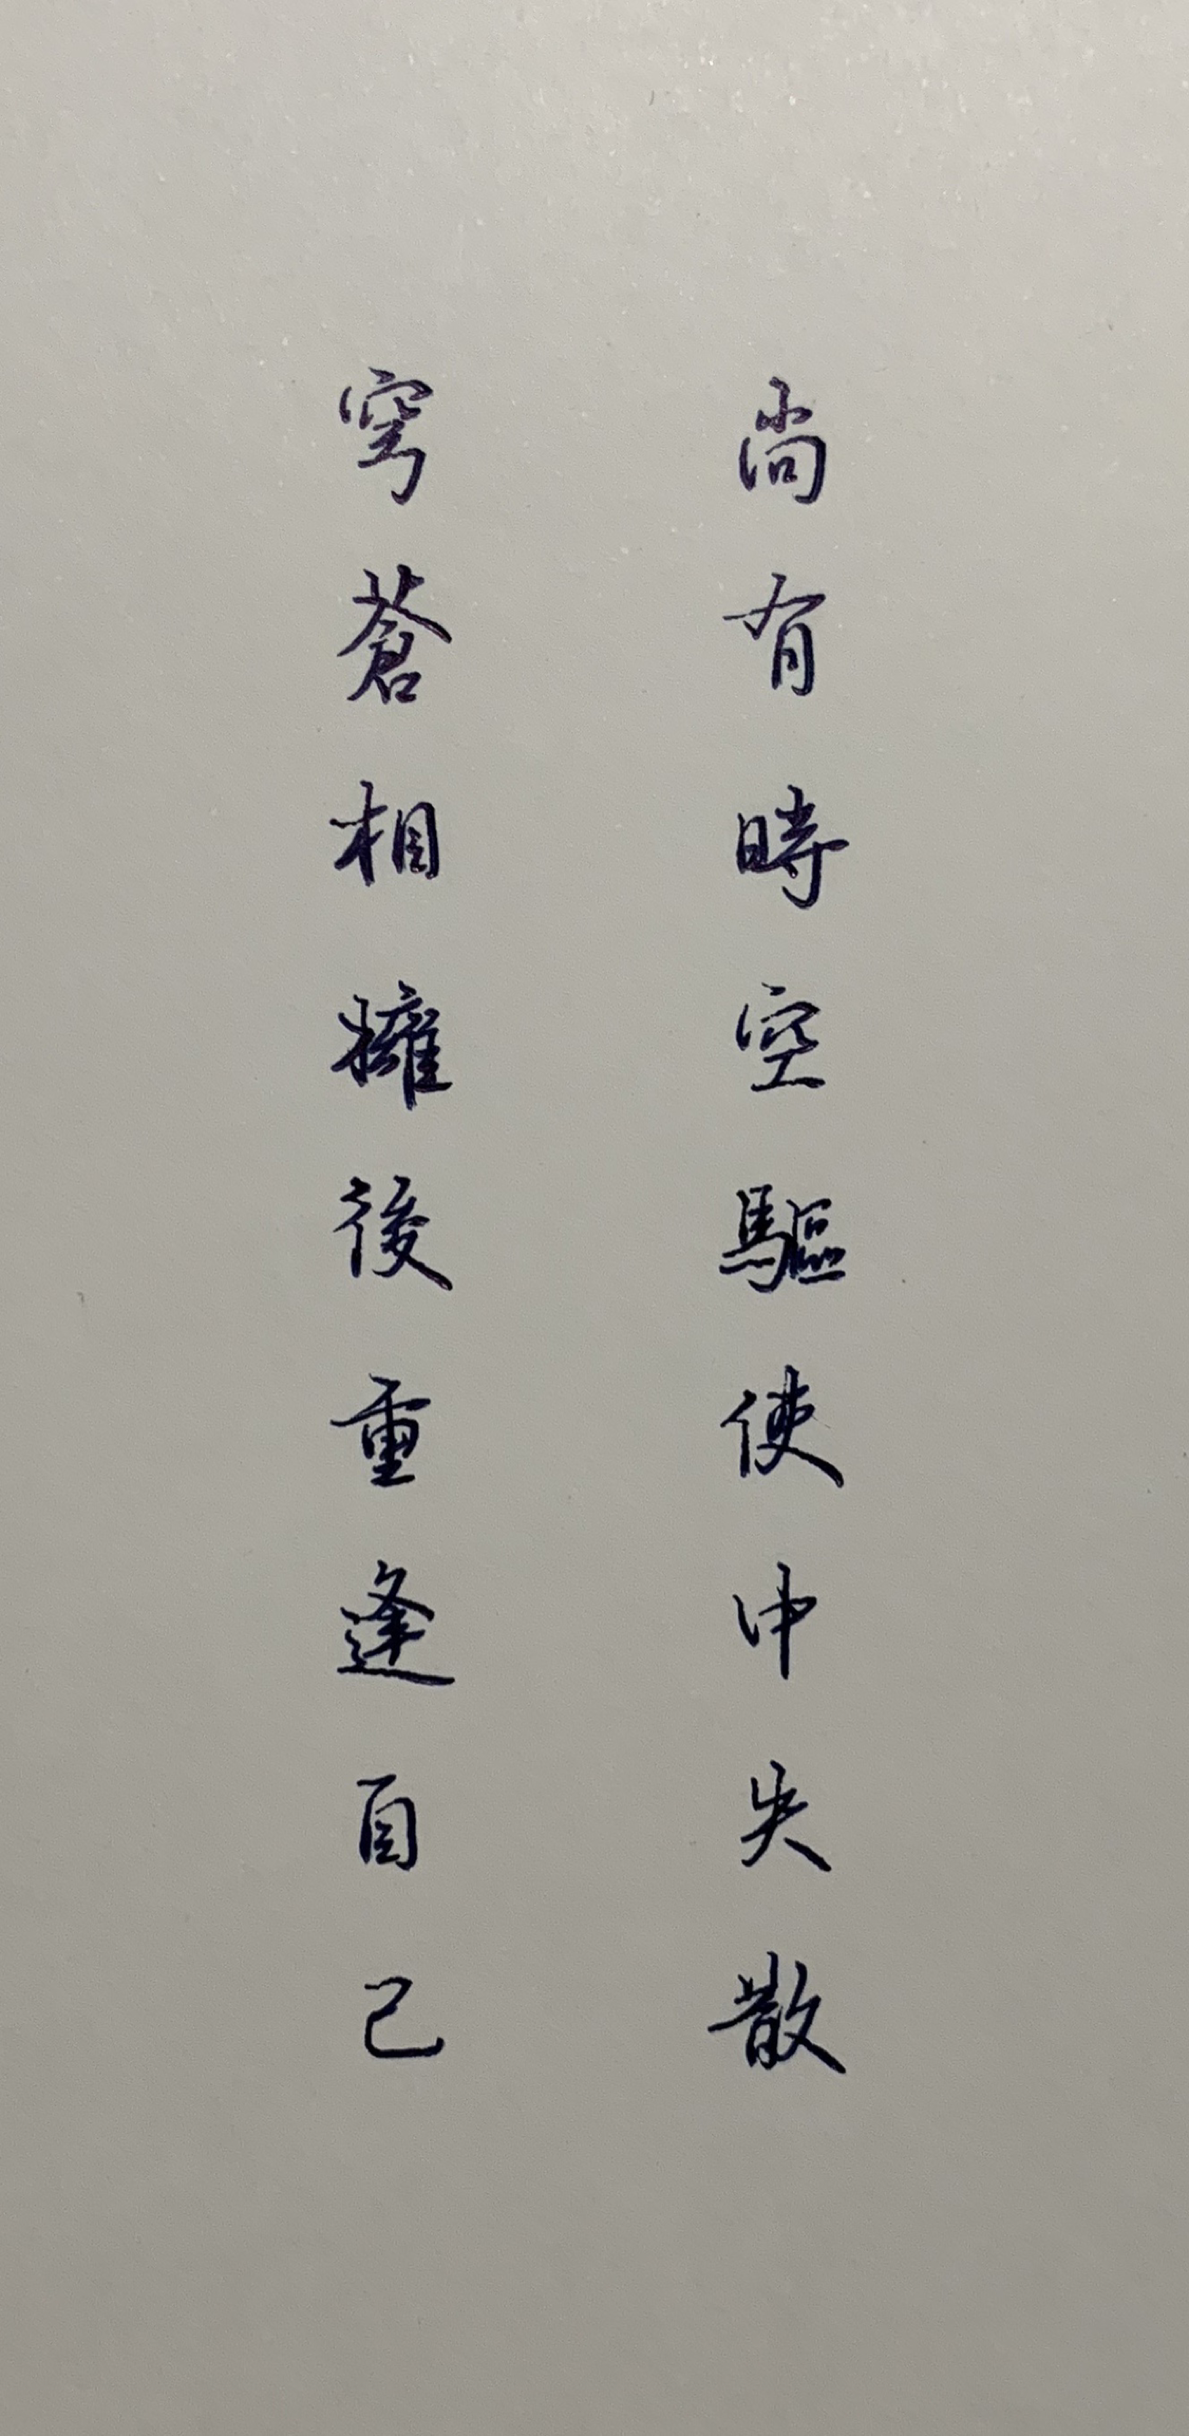 尚有時空驅使中失散
穹蒼相擁後重逢自己